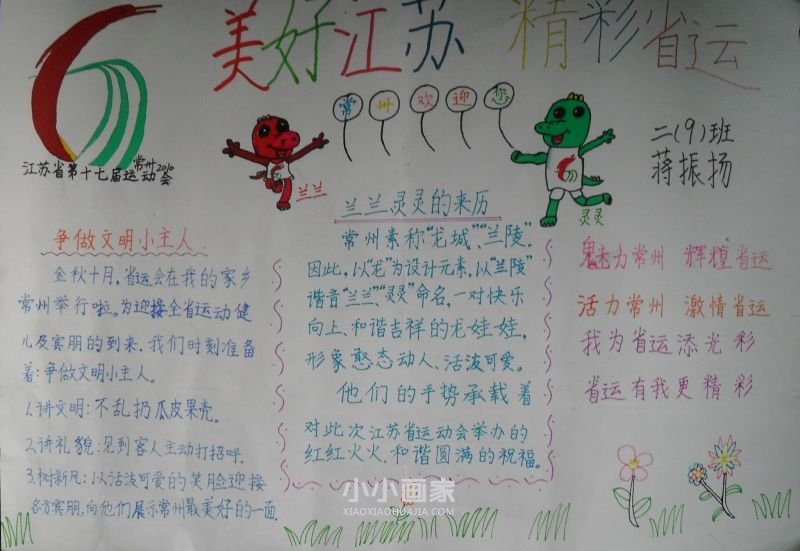 美好江苏 精彩省运
常州欢迎您
江苏省第十七届运动会
常州2010
二(9)班
蒋振扬
兰兰
灵灵
争做文明小主人
金秋十月,省运会在我的家乡
常州举行啦。为迎接全省运动健
儿及宾朋的到来,我们时刻准备
着:争做文明小主人。
1.讲文明:不乱扔瓜皮果壳。
2.讲礼貌:见到客人主动打招呼.
3.树新风:以活泼可爱的笑脸迎接
各方宾朋,向他们展示常州最美好的一面
兰兰灵灵的来历
常州素称“龙城”、“兰陵”.
因此,以“龙”为设计元素,以“兰陵”
谐音“兰兰”“灵灵”命名,一对快乐
向上、和谐吉祥的龙娃娃,
形象憨态动人、活泼可爱。
他们的手势承载着
对此次江苏省运动会举办的
红红火火、和谐圆满的祝福。
魅力常州 辉煌省运
活力常州 激情省运
我为省运添光彩
省运有我更精彩
小小画家
XIAOXIAOHUAJIA.COM